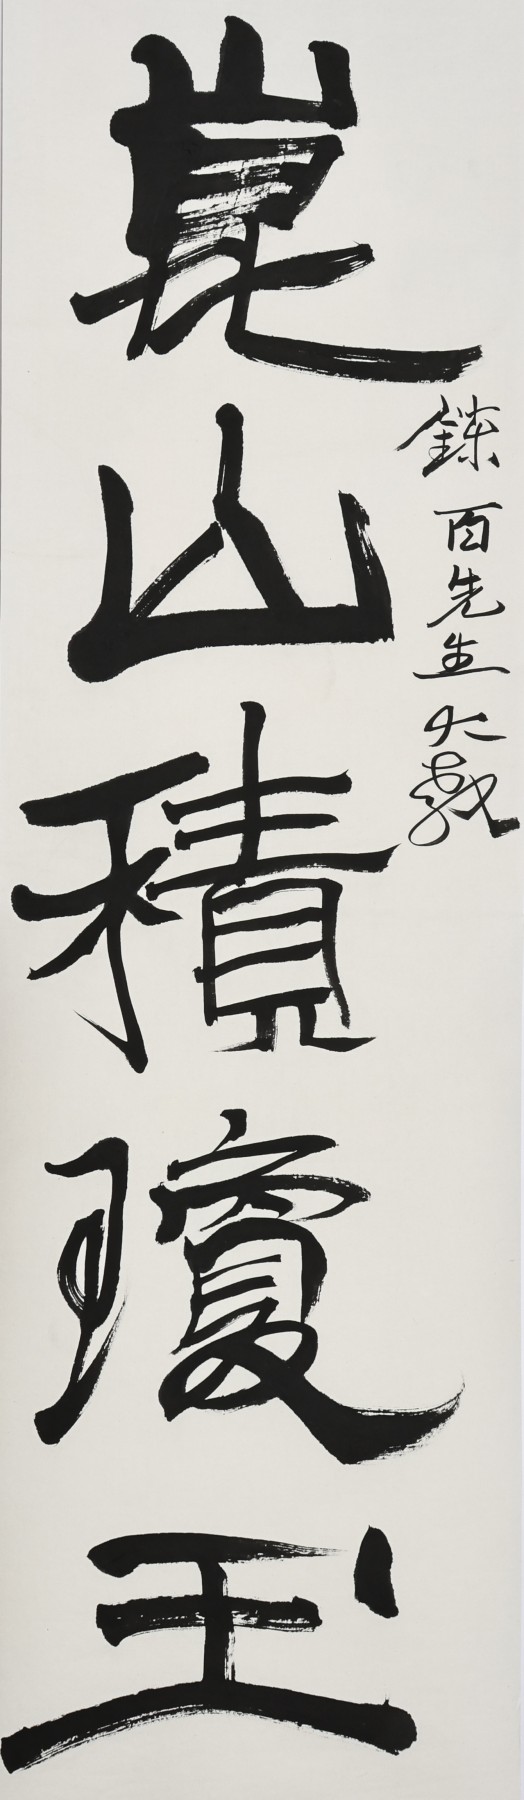 鍊百先生大教
崑山積瓊玉